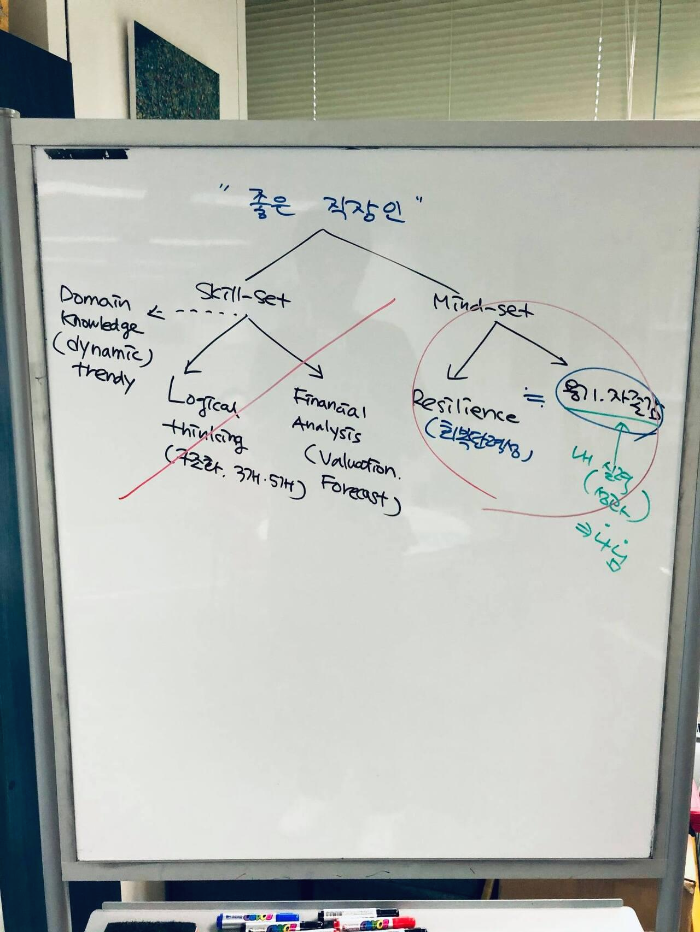 "좋은 직장인"
Skill-set
Mind-set
Domain
Knowledge
(dynamic)
trendy
Logical
thinking
(구조화. 3개·5개)
Financial
Analysis
(Valuation.
Forecast)
Resilience
(회복탄력성)
≒
용기·자존감
내 실력
(성과)
⇒